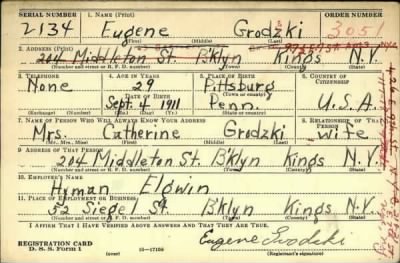 SERIAL NUMBER 1. NAME (Print) ORDER NUMBER
2134 Eugene Grodzki 3051
(First) (Middle) (Last)
2. ADDRESS (Print)
204 Middleton St. B'klyn Kings N.Y.
(Number and street or R. F. D. number) (Town) (County) (State)
3. TELEPHONE 4. AGE IN YEARS 5. PLACE OF BIRTH 6. COUNTRY OF CITIZENSHIP
None 29 Pittsburg
DATE OF BIRTH (Town or county)
Sept. 4 1911 Penn. U.S.A.
(Exchange) (Number) (Mo.) (Day) (Yr.) (State or country)
7. NAME OF PERSON WHO WILL ALWAYS KNOW YOUR ADDRESS 8. RELATIONSHIP OF THAT PERSON
Mrs. Catherine Grodzki wife
(Mr., Mrs., Miss) (First) (Middle) (Last)
9. ADDRESS OF THAT PERSON
204 Middleton St. B'klyn Kings N.Y.
(Number and street or R. F. D. number) (Town) (County) (State)
10. EMPLOYER'S NAME
Hyman Elgwin
11. PLACE OF EMPLOYMENT OR BUSINESS
52 Siegel St. B'klyn Kings N.Y.
(Number and street or R. F. D. number) (Town) (County) (State)
I AFFIRM THAT I HAVE VERIFIED ABOVE ANSWERS AND THAT THEY ARE TRUE.
REGISTRATION CARD
D. S. S. Form 1 (over) 16—17105 Eugene Grodzki
(Registrant's signature)